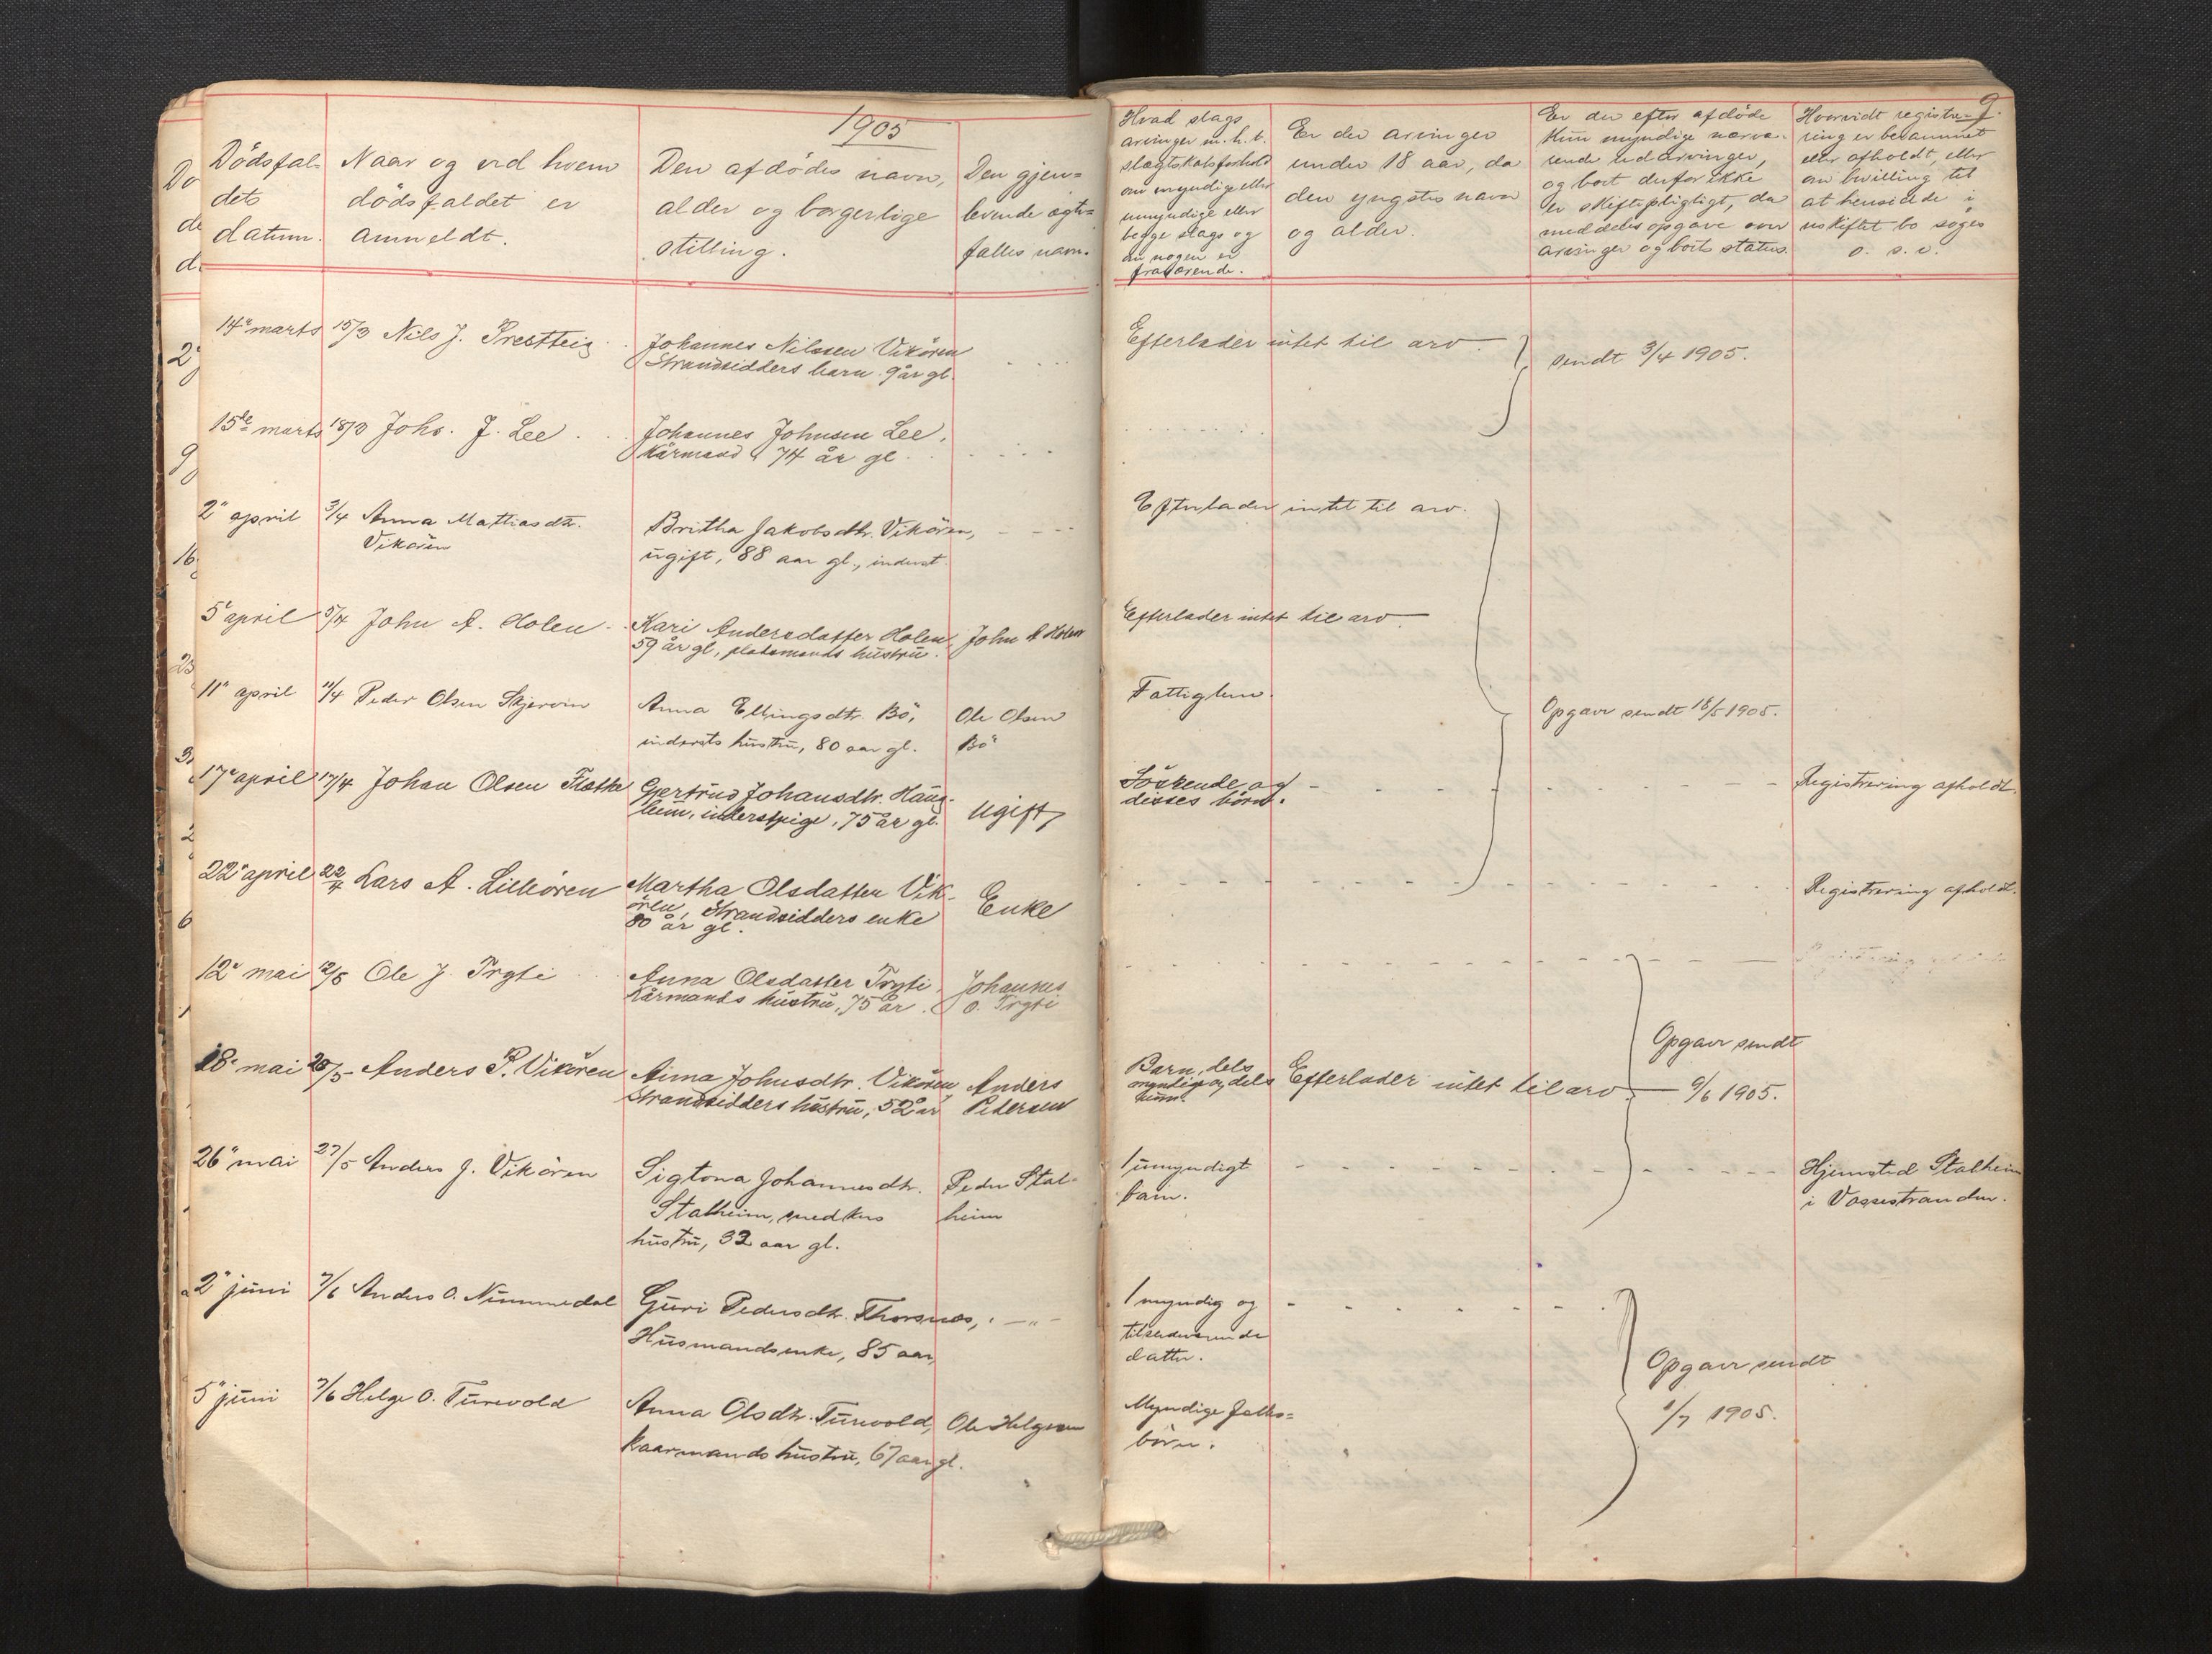 1905
9.
Dödsfal-
dets
datum.
Naar og ved hvem
dödsfaldet er
anmeldt.
Den afdödes navn,
alder og borgerlige
stilling.
Den gjen-
levende ægte-
fælles navn.
Hvad slags
arvinger m. h. t.
slægtskabsforhold
om myndige eller
umyndige eller
begge slags og
om nogen er
fraværende.
Er der arvinger
under 18 aar, da
den yngstes navn
og alder.
Er der efter afdöde
kun myndige nærvæ-
rende udarvinger,
og boet derfor ikke
er skiftepligtigt, da
meddeles opgave over
arvinger og boets status.
Hvorvidt registre-
ring er berammet
eller afholdt, eller
om bevilling til
at hensidde i
uskiftet bo söges
o. s. v.
14de marts
15/3 Nils J. Prestteig
Johannes Nilssen Vikören
Strandsidders barn 9 år gl.
Efterlader intet til arv
sendt 3/4 1905.
15de marts
18/3 Johs. J. Lee
Johannes Johnsen Lee,
Kårmand 74 år gl
2" april
3/4 Anna Mathiasdtr.
Vikören
Britha Jakobsdtr. Vikören,
ugift, 88 aar gl., inderst.
Efterlader intet til arv.
5" april
5/4 John A. Holen
Kari Andersdatter Holen,
59 år gl, pladsmands hustru.
John A Holen
Efterlader intet til arv.
11" april
11/4 Peder Olsen Skjervin
Anna Ellingsdtr. Bö,
indersts hustru, 80 aar gl.
Ole Olsen
Bö
Fattiglem.
Opgave sendt 18/5 1905.
17" april
17/4 Johan Olsen Flatke
Gjertrud Johansdtr. Haug-
, inderstpige, 75 år gl.
Ugift
Söskende og
disses börn.
Registrering afholdt.
22" april
22/4 Lars A. Lilleören
Martha Olsdatter Vik-
ören, Strandsidders enke
80 år gl.
Enke
Registrering afholdt.
12" mai
12/5 Ole J. Tryti
Anna Olsdatter Tryti
Kårmands hustru, 75 år.
Johannes
O. Tryti
18" mai
20/5 Anders P. Vikören
Anna Johnsdtr. Vikören
Strandsidders hustru, 52 år
Anders
Pedersen
Barn, dels
myndige og dels
Efterlader intet til arv
Opgave sendt
9/6 1905.
26" mai
27/5 Anders J. Vikören
Sigtona Johannesdtr.
Stalheim, snedkers
hustru, 32 aar gl.
Peder Stal-
heim
1 umyndigt
barn.
Hjemsted Stalheim
i Vossestranden.
2" juni
7/6 Anders O. Nummedal
Guri Pedersdtr. Thorsnes,
Husmandsenke, 85 aar
1 myndig og
tilstedeværende
datter.
5" juni
7/6 Helge O. Turvold
Anna Olsdtr. Turvold,
kaarmands hustru, 67 aar gl.
Ole Helgesen
Myndige fælles-
börn.
Opgave sendt
1/7 1905.